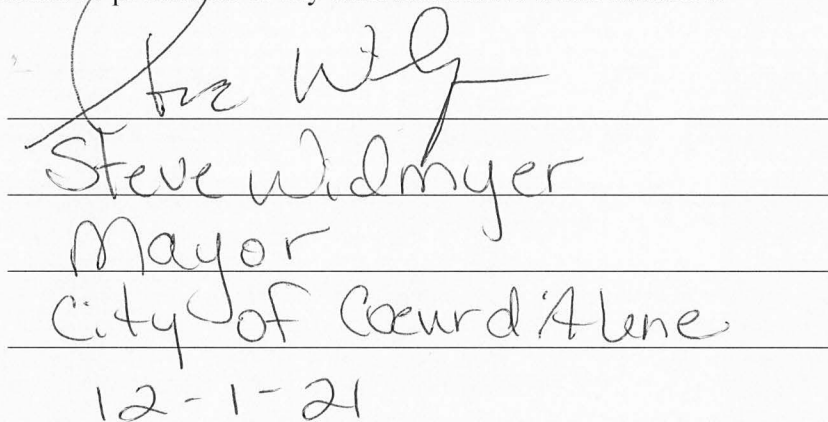 Steve Widmyer
Mayor
City of Coeur d'Alene
12-1-21